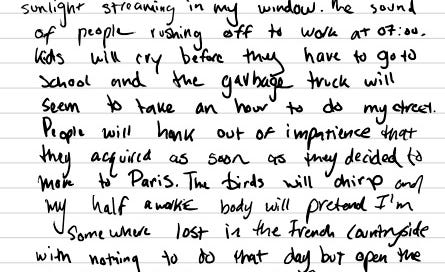 sunlight streaming in my window. The sound
of people rushing off to work at 07:00.
Kids will cry before they have to go to
school and the garbage truck will
seem to take an hour to do my street.
People will honk out of impatience that
they acquired as soon as they decided to
move to Paris. The birds will chirp and
my half awake body will pretend I'm
somewhere lost in the French countryside
with nothing to do that day but open the